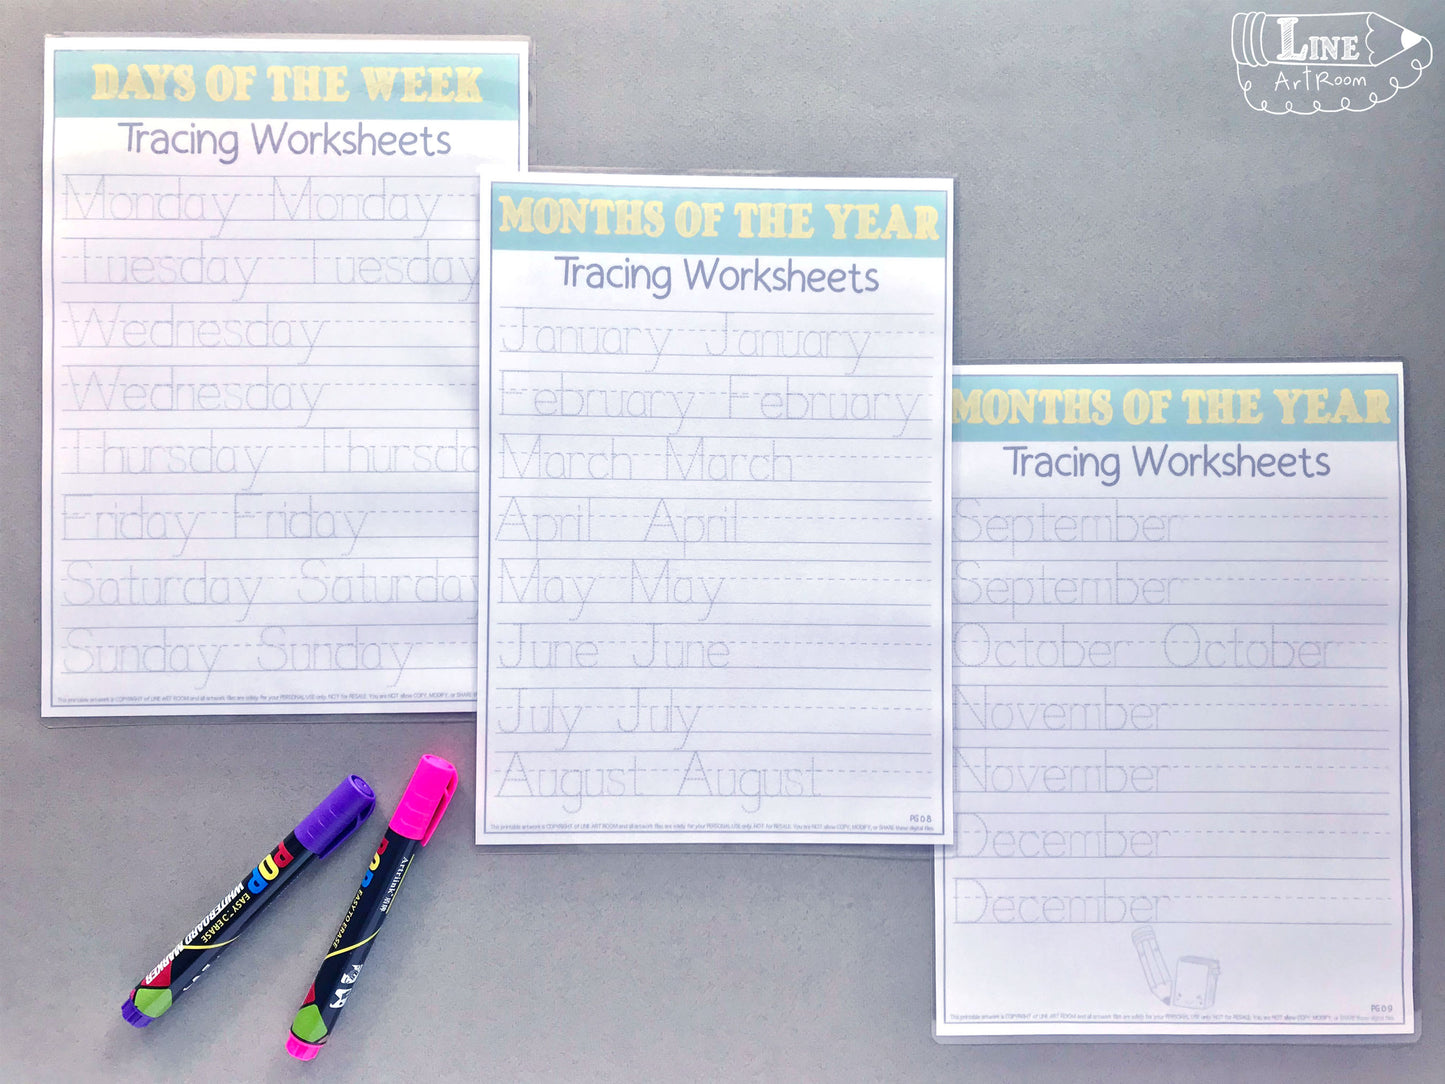 LINE
ArtRoom
DAYS OF THE WEEK
Tracing Worksheets
Monday Monday
Tuesday Tuesday
Wednesday
Wednesday
Thursday Thursda
Friday Friday
Saturday Saturday
Sunday Sunday
This printable artwork is COPYRIGHT of LINE ART ROOM and all artwork files are solely for your PERSONAL USE only. NOT for RESALE. You are NOT allow COPY, MODIFY, or SHARE
MONTHS OF THE YEAR
Tracing Worksheets
January January
February February
March March
April April
May May
June June
July July
August August
PG 08
This printable artwork is COPYRIGHT of LINE ART ROOM and all artwork files are solely for your PERSONAL USE only. NOT for RESALE. You are NOT allow COPY, MODIFY, or SHARE these digital files.
MONTHS OF THE YEAR
Tracing Worksheets
September
September
October October
November
November
December
December
PG 09
This printable artwork is COPYRIGHT of LINE ART ROOM and all artwork files are solely for your PERSONAL USE only. NOT for RESALE. You are NOT allow COPY, MODIFY, or SHARE these digital files.
POP
EASY TO ERASE
WHITEBOARD MARKER
POP
Artrink
EASY TO ERASE